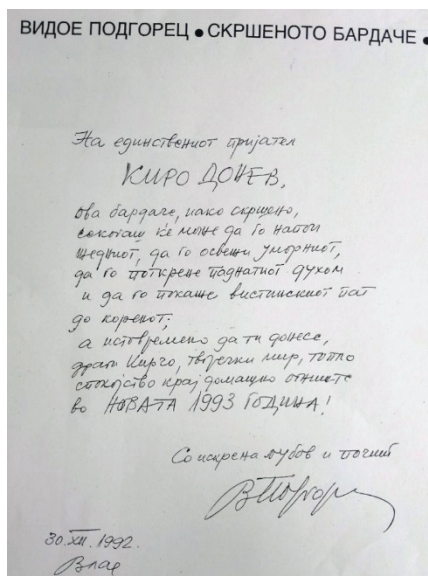 ВИДОЕ ПОДГОРЕЦ ● СКРШЕНОТО БАРДАЧЕ ●
На единствениот пријател
КИРО ДОНЕВ,
ова бардаче, иако скршено,
секогаш ќе може да го напои
жедниот, да го освежи уморниот,
да го поткрепе паднатиот духом
и да го покаже вистинскиот пат
до коренот;
а истовремено да ти донесе,
драги Кирчо, творечки мир, топло
спокојство крај домашно огниште
во НОВАТА 1993 ГОДИНА!
Со искрена љубов и почит
30.XII.1992.